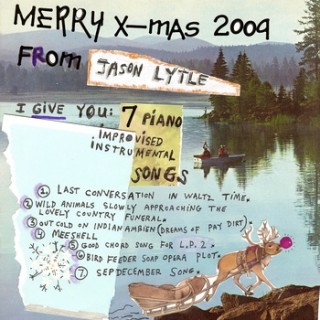 MERRY X-MAS 2009
FROM JASON LYTLE
I GIVE YOU: 7 PIANO
IMPROVISED
INSTRUMENTAL
SONGS
1 LAST CONVERSATION IN WALTZ TIME.
2 WILD ANIMALS SLOWLY APPROACHING THE
LOVELY COUNTRY FUNERAL.
3 OUT COLD ON INDIAN AMBIEN (DREAMS OF PAY DIRT).
4 MEESHELL
5 GOOD CHORD SONG FOR L.P. 2
6 BIRD FEEDER SOAP OPERA PLOT.
7 SEPDECEMBER SONG.